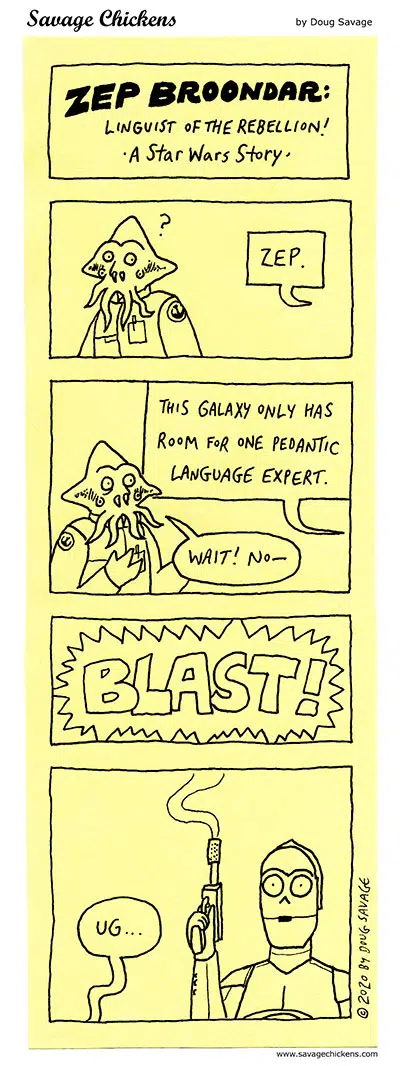 Savage Chickens
by Doug Savage
ZEP BROONDAR:
LINGUIST OF THE REBELLION!
· A Star Wars Story ·
?
ZEP.
THIS GALAXY ONLY HAS
ROOM FOR ONE PEDANTIC
LANGUAGE EXPERT.
WAIT! NO—
BLAST!
UG...
© 2020 BY DOUG SAVAGE
www.savagechickens.com